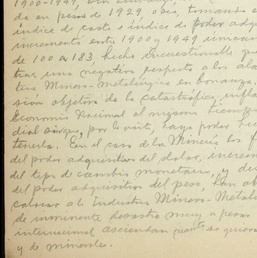 1900-1949,
da en pesos de 1929 o sea, tomando e
índice de costo e índice de poder adqu
incremento entre 1900 y 1949 
de 100 a 183, hecho incuestionable qu
trar una negativa respecto a los
tria Minero-Metalúrgica en bonanza,
sión objetiva de la catastrófica infla
Economía Nacional al
dial por lo visto, haya podido
tenerla. En el caso de la Minería los f
del poder adquisitivo del dolar, increm
del tipo de cambio monetario, y de
del poder adquisitivo del peso, han ob
colocar a la Industria Minero-Metalú
de inminente desastre muy a pesar
internacional asciendan
y de minerales.